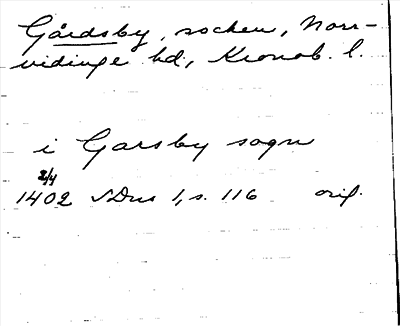 Gårdsby, socken, Norr-
vidinge hd, Kronob. l.
i Garsby sogn
2/4
1402 SDns 1, s. 116 orig.